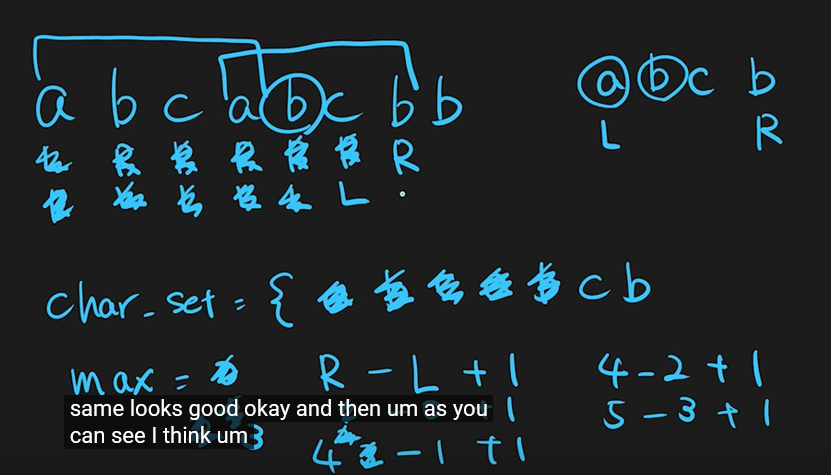 a b c a b c b b
a b c b
R
L R
L
char_set = { c b
max = R - L + 1 4 - 2 + 1
+ 1 5 - 3 + 1
3 4 - 1 + 1
same looks good okay and then um as you
can see I think um